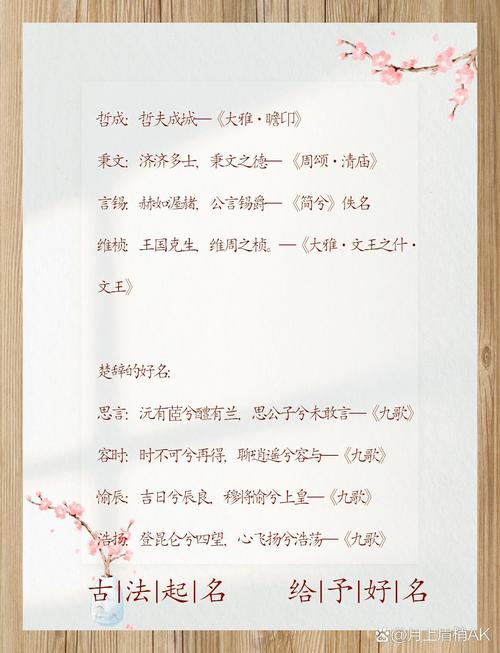 哲成：哲夫成城—《大雅·瞻卬》
秉文：济济多士，秉文之德—《周颂·清庙》
言锡：赫如渥赭，公言锡爵—《简兮》佚名
维桢：王国克生，维周之桢。—《大雅·文王之什·
文王》
楚辞的好名：
思言：沅有茝兮醴有兰，思公子兮未敢言—《九歌》
容时：时不可兮再得，聊逍遥兮容与—《九歌》
愉辰：吉日兮辰良，穆将愉兮上皇—《九歌》
浩扬：登昆仑兮四望，心飞扬兮浩荡—《九歌》
古|法|起|名 给|予|好|名
@月上眉梢AK